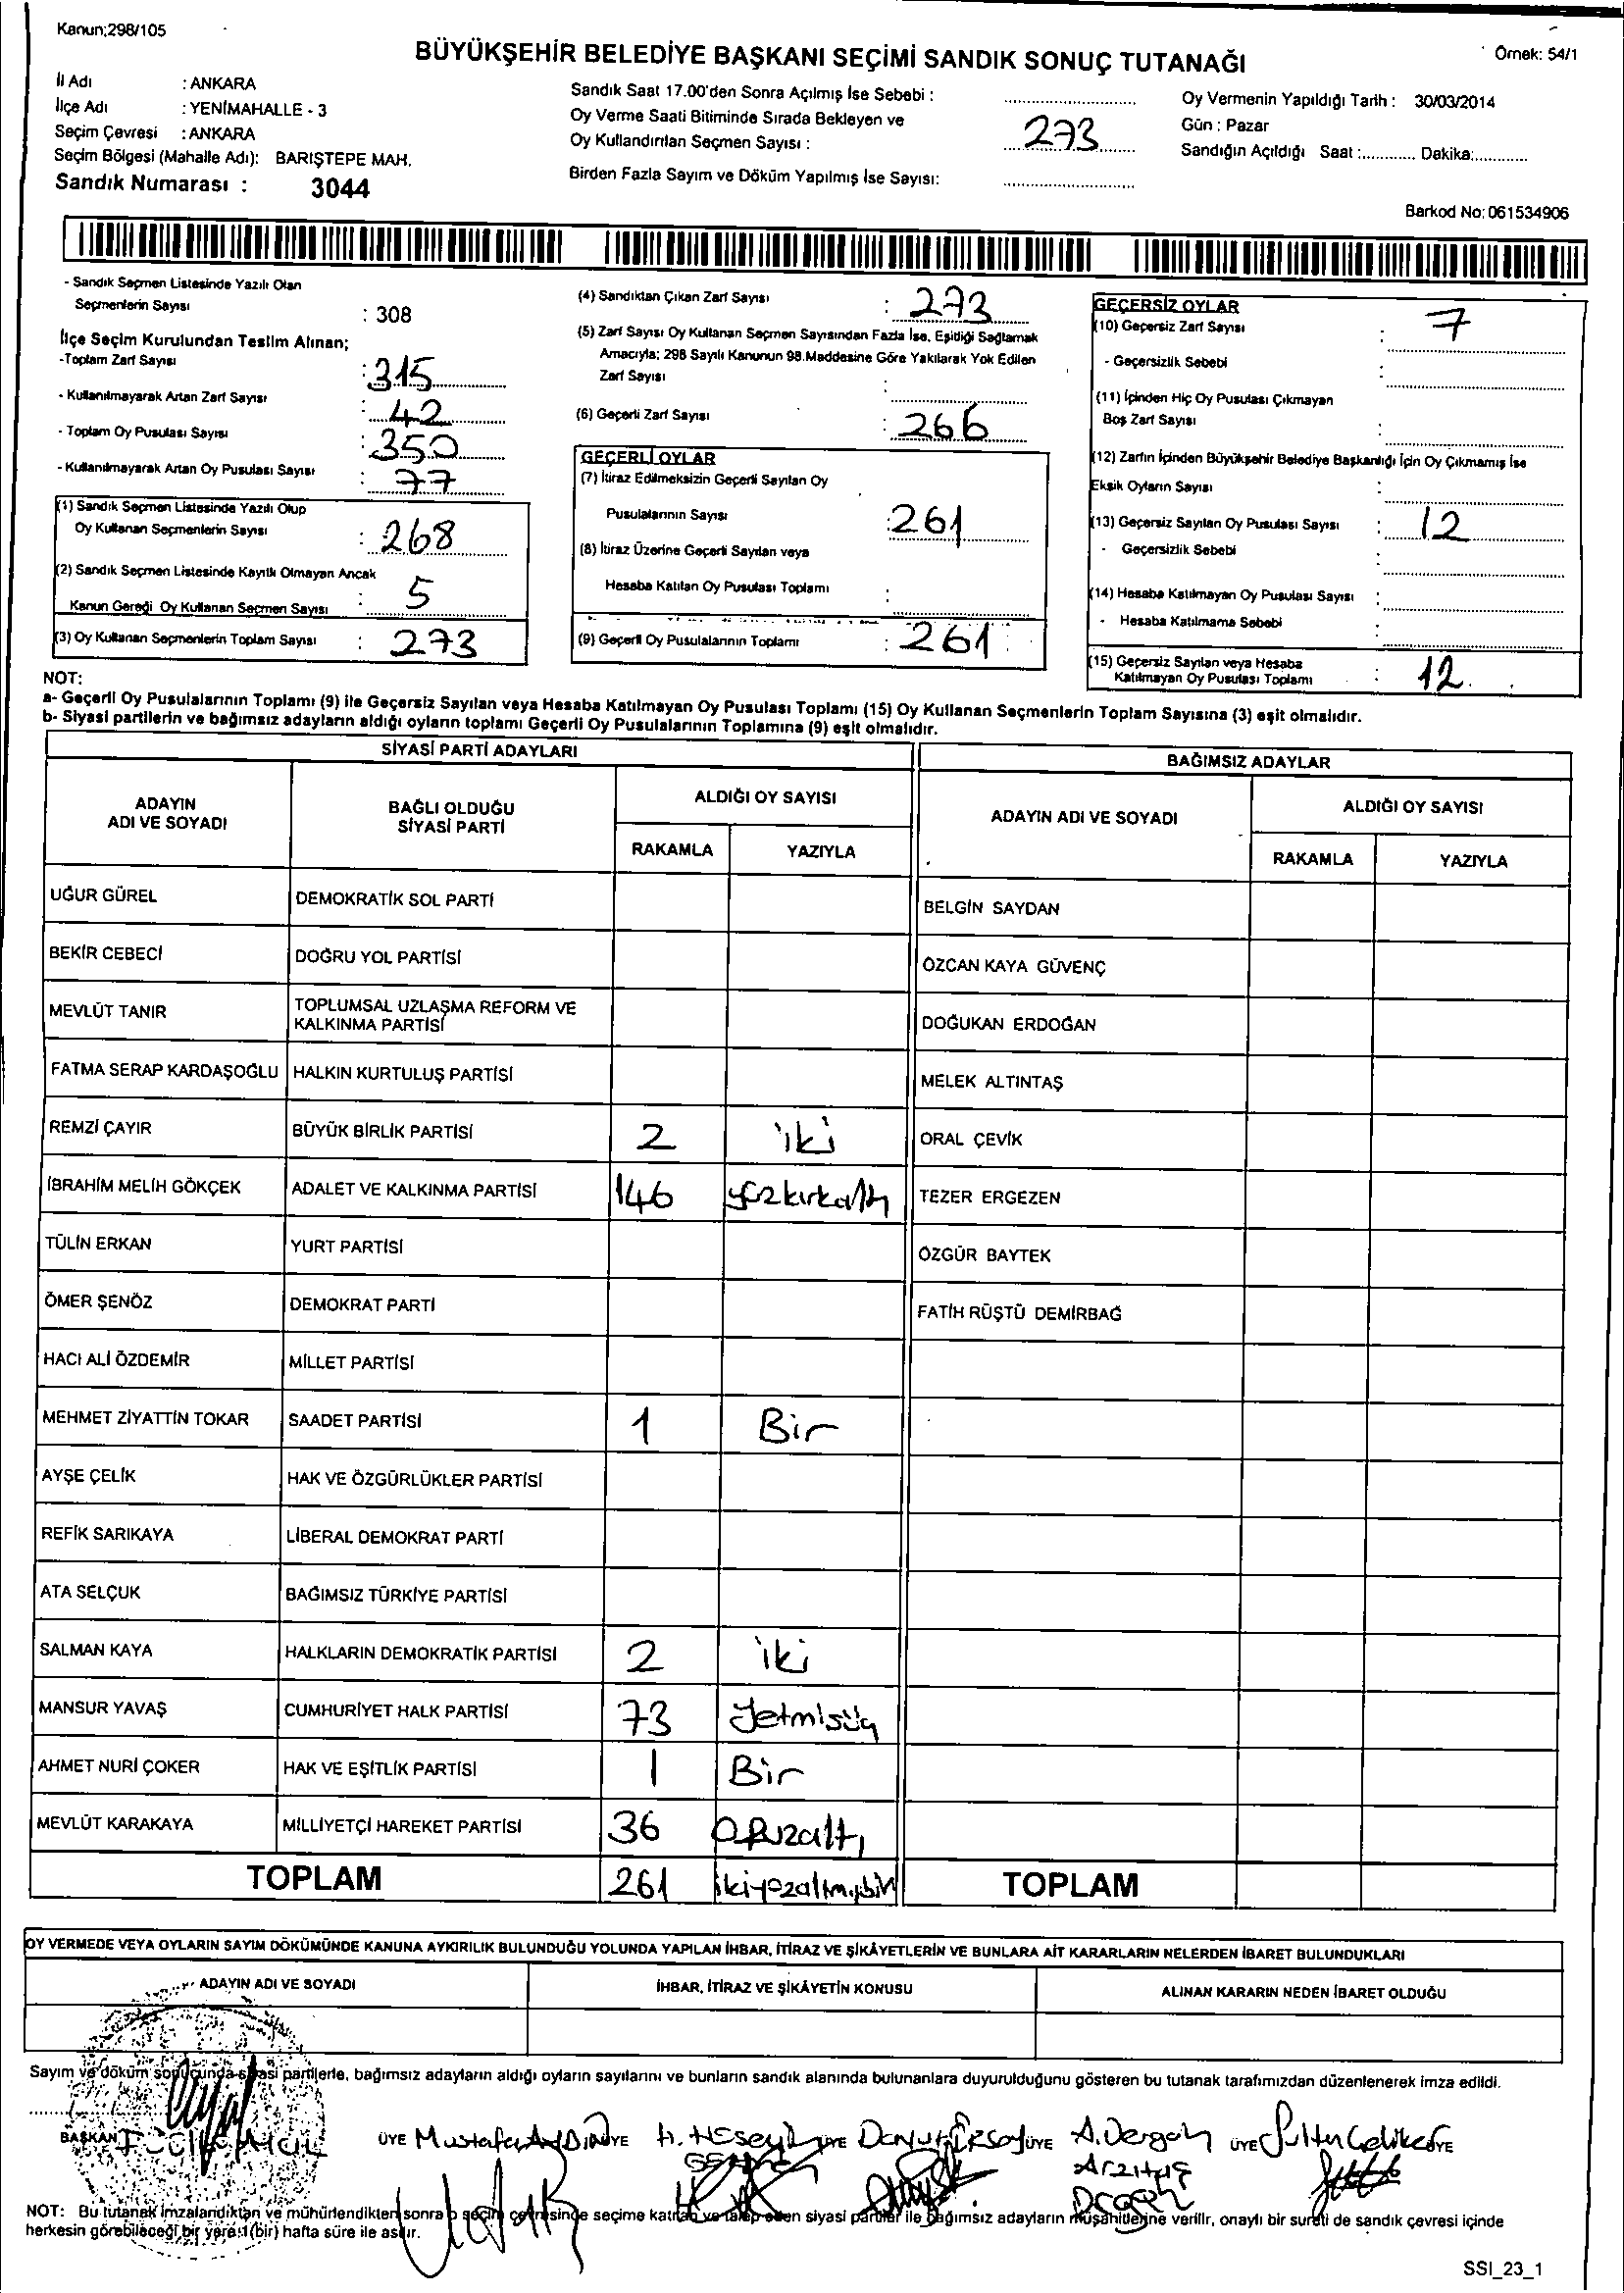 Kanun;298/105
BÜYÜKŞEHİR BELEDİYE BAŞKANI SEÇİMİ SANDIK SONUÇ TUTANAĞI
Örnek: 54/1
İl Adı : ANKARA
İlçe Adı : YENİMAHALLE - 3
Seçim Çevresi : ANKARA
Seçim Bölgesi (Mahalle Adı): BARIŞTEPE MAH.
Sandık Numarası : 3044
Sandık Saat 17.00'den Sonra Açılmış İse Sebebi :
Oy Verme Saati Bitiminde Sırada Bekleyen ve
Oy Kullandırılan Seçmen Sayısı : 273
Birden Fazla Sayım ve Döküm Yapılmış İse Sayısı:
Oy Vermenin Yapıldığı Tarih : 30/03/2014
Gün : Pazar
Sandığın Açıldığı Saat :............. Dakika:............
Barkod No: 061534906
- Sandık Seçmen Listesinde Yazılı Olan
Seçmenlerin Sayısı : 308
İlçe Seçim Kurulundan Teslim Alınan;
-Toplam Zarf Sayısı : 315
- Kullanılmayarak Artan Zarf Sayısı : 42
- Toplam Oy Pusulası Sayısı : 350
- Kullanılmayarak Artan Oy Pusulası Sayısı : 77
(1) Sandık Seçmen Listesinde Yazılı Olup
Oy Kullanan Seçmenlerin Sayısı : 268
(2) Sandık Seçmen Listesinde Kayıtlı Olmayan Ancak
Kanun Gereği Oy Kullanan Seçmen Sayısı : 5
(3) Oy Kullanan Seçmenlerin Toplam Sayısı : 273
(4) Sandıktan Çıkan Zarf Sayısı : 273
(5) Zarf Sayısı Oy Kullanan Seçmen Sayısından Fazla İse, Eşitliği Sağlamak
Amacıyla; 298 Sayılı Kanunun 98.Maddesine Göre Yakılarak Yok Edilen
Zarf Sayısı :
(6) Geçerli Zarf Sayısı : 266
GEÇERLİ OYLAR
(7) İtiraz Edilmeksizin Geçerli Sayılan Oy
Pusulalarının Sayısı : 261
(8) İtiraz Üzerine Geçerli Sayılan veya
Hesaba Katılan Oy Pusulası Toplamı :
(9) Geçerli Oy Pusulalarının Toplamı : 261
GEÇERSİZ OYLAR
(10) Geçersiz Zarf Sayısı : 7
- Geçersizlik Sebebi :
(11) İçinden Hiç Oy Pusulası Çıkmayan
Boş Zarf Sayısı :
(12) Zarfın İçinden Büyükşehir Belediye Başkanlığı İçin Oy Çıkmamış İse
Eksik Oyların Sayısı :
(13) Geçersiz Sayılan Oy Pusulası Sayısı : 12
- Geçersizlik Sebebi :
(14) Hesaba Katılmayan Oy Pusulası Sayısı :
- Hesaba Katılmama Sebebi :
(15) Geçersiz Sayılan veya Hesaba
Katılmayan Oy Pusulası Toplamı : 12
NOT:
a- Geçerli Oy Pusulalarının Toplamı (9) ile Geçersiz Sayılan veya Hesaba Katılmayan Oy Pusulası Toplamı (15) Oy Kullanan Seçmenlerin Toplam Sayısına (3) eşit olmalıdır.
b- Siyasi partilerin ve bağımsız adayların aldığı oyların toplamı Geçerli Oy Pusulalarının Toplamına (9) eşit olmalıdır.
SİYASİ PARTİ ADAYLARI
BAĞIMSIZ ADAYLAR
ADAYIN ADI VE SOYADI
BAĞLI OLDUĞU SİYASİ PARTİ
ALDIĞI OY SAYISI
ADAYIN ADI VE SOYADI
ALDIĞI OY SAYISI
RAKAMLA YAZIYLA RAKAMLA YAZIYLA
UĞUR GÜREL DEMOKRATİK SOL PARTİ BELGİN SAYDAN
BEKİR CEBECİ DOĞRU YOL PARTİSİ ÖZCAN KAYA GÜVENÇ
MEVLÜT TANIR TOPLUMSAL UZLAŞMA REFORM VE KALKINMA PARTİSİ DOĞUKAN ERDOĞAN
FATMA SERAP KARDAŞOĞLU HALKIN KURTULUŞ PARTİSİ MELEK ALTINTAŞ
REMZİ ÇAYIR BÜYÜK BİRLİK PARTİSİ 2 iki ORAL ÇEVİK
İBRAHİM MELİH GÖKÇEK ADALET VE KALKINMA PARTİSİ 146 yüzkırkaltı TEZER ERGEZEN
TÜLİN ERKAN YURT PARTİSİ ÖZGÜR BAYTEK
ÖMER ŞENÖZ DEMOKRAT PARTİ FATİH RÜŞTÜ DEMİRBAĞ
HACI ALİ ÖZDEMİR MİLLET PARTİSİ
MEHMET ZİYATTİN TOKAR SAADET PARTİSİ 1 Bir
AYŞE ÇELİK HAK VE ÖZGÜRLÜKLER PARTİSİ
REFİK SARIKAYA LİBERAL DEMOKRAT PARTİ
ATA SELÇUK BAĞIMSIZ TÜRKİYE PARTİSİ
SALMAN KAYA HALKLARIN DEMOKRATİK PARTİSİ 2 iki
MANSUR YAVAŞ CUMHURİYET HALK PARTİSİ 73 Yetmisüç
AHMET NURİ ÇOKER HAK VE EŞİTLİK PARTİSİ 1 Bir
MEVLÜT KARAKAYA MİLLİYETÇİ HAREKET PARTİSİ 36 Otuzaltı
TOPLAM 261 ikiyüzaltmışbir TOPLAM
OY VERMEDE VEYA OYLARIN SAYIM DÖKÜMÜNDE KANUNA AYKIRILIK BULUNDUĞU YOLUNDA YAPILAN İHBAR, İTİRAZ VE ŞİKÂYETLERİN VE BUNLARA AİT KARARLARIN NELERDEN İBARET BULUNDUKLARI
ADAYIN ADI VE SOYADI İHBAR, İTİRAZ VE ŞİKÂYETİN KONUSU ALINAN KARARIN NEDEN İBARET OLDUĞU
Sayım ve döküm sonucunda siyasi partilerle, bağımsız adayların aldığı oyların sayılarını ve bunların sandık alanında bulunanlara duyurulduğunu gösteren bu tutanak tarafımızdan düzenlenerek imza edildi.
BAŞKAN ÜYE Mustafa AYDIN ÜYE H. HÜSEYİN ÜYE ÜYE A. Dergah ÜYE Sultan ÜYE
NOT: Bu tutanak imzalandıktan ve mühürlendikten sonra o seçim çevresinde seçime katılan ve talep eden siyasi partiler ile bağımsız adayların müşahitlerine verilir, onaylı bir sureti de sandık çevresi içinde
herkesin görebileceği bir yere 1 (bir) hafta süre ile asılır.
SSI_23_1